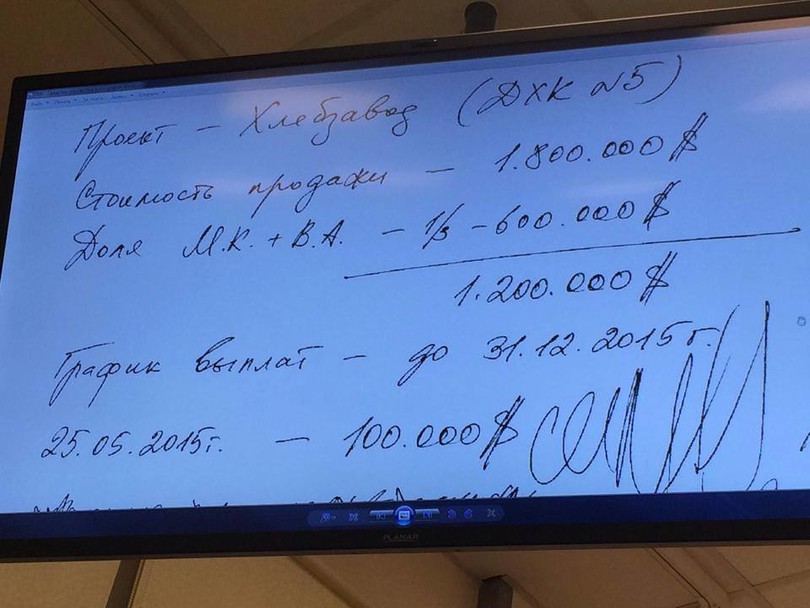 Проект – Хлебзавод (ДХК №5)
Стоимость продажи – 1.800.000 $
Доля М.К. + В.А. – 1/3 – 600.000 $
1.200.000 $
График выплат – до 31.12.2015г.
25.05.2015г. – 100.000 $
PLANAR